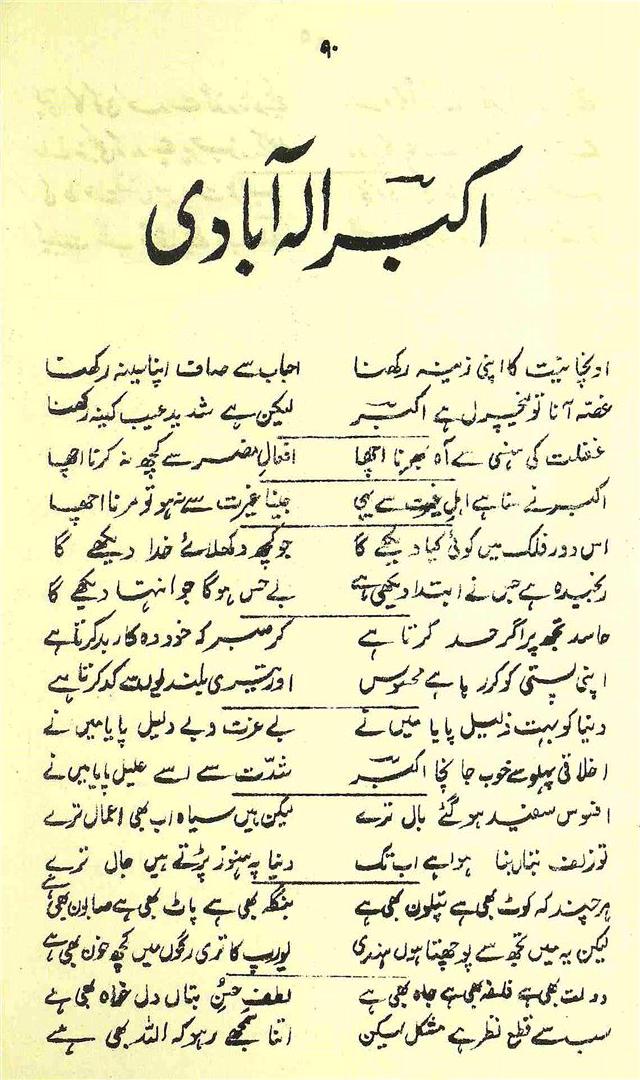 ۹۰
اکبر الہ آبادی
اونچا نیت کا اپنی زینہ رکھنا احباب سے صاف اپنا سینہ رکھنا
غصہ آنا تو نیچرل ہے اکبر لیکن ہے شدید عیب کینہ رکھنا
غفلت کی ہنسی سے آہ بھرنا اچھا افعالِ مضر سے کچھ نہ کرنا اچھا
اکبر نے سنا ہے اہلِ غیرت سے یہی جینا غیرت سے نہ ہو تو مرنا اچھا
اس دور فلک میں کوئی کیا دیکھے گا جو کچھ دکھلائے خدا دیکھے گا
رنجیدہ ہے جس نے ابتدا دیکھی ہے بے حس ہوگا جو انتہا دیکھے گا
حاسد تجھ پر اگر حسد کرتا ہے کر صبر کہ خود وہ کار بد کرتا ہے
اپنی پستی کو کر رہا ہے محسوس اور تیری بلندیوں سے کد کرتا ہے
دنیا کو بہت ذلیل پایا میں نے بے عزت و بے دلیل پایا میں نے
اخلاقی پہلو سے خوب جانچا اکبر شدّت سے اسے علیل پایا میں نے
افسوس سفید ہو گئے بال ترے لیکن ہیں سیاہ اب بھی اعمال ترے
تو زلف بتاں بنا ہوا ہے اب تک دنیا پہ ہنوز پڑتے ہیں جال ترے
ہر چند کہ کوٹ بھی ہے پتلون بھی ہے بنگلہ بھی ہے پاٹ بھی ہے صابون بھی ہے
لیکن یہ میں تجھ سے پوچھتا ہوں ہندی یورپ کا تری رگوں میں کچھ خون بھی ہے
دولت بھی ہے فلسفہ بھی ہے جاہ بھی ہے لطفِ حسنِ بتاں دل خواہ بھی ہے
سب سے قطع نظر ہے مشکل لیکن اتنا سمجھے رہو کہ اللہ بھی ہے